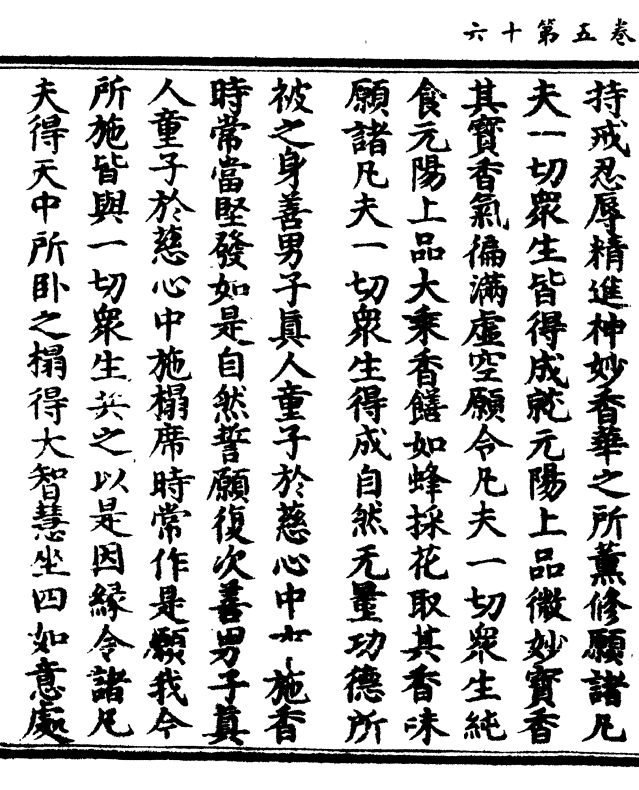 卷五第十六
持戒忍辱精進神妙香華之所薰修願諸凡
夫一切眾生皆得成就元陽上品微妙寶香
其寶香氣徧滿虛空願令凡夫一切眾生純
食元陽上品大乘香饍如蜂採花取其香味
願諸凡夫一切眾生得成自然无量功德所
被之身善男子真人童子於慈心中 施香
時常當堅發如是自然誓願復次善男子真
人童子於慈心中施榻席時常作是願我今
所施皆與一切眾生共之以是因緣令諸凡
夫得天中所卧之榻得大智慧坐四如意處